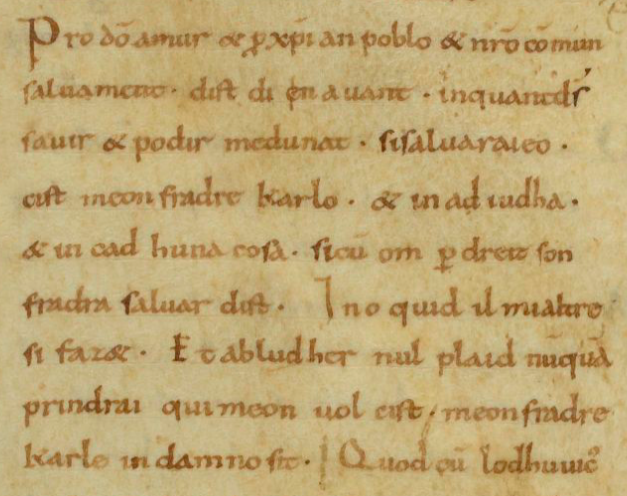 Pro dō amur & ꝑ xp̄ian poblo & nr̄o cōmun
saluament. dist di en auant. inquantd̄s
sauir & podir medunat. sisaluaraieo.
cist meon fradre karlo. & in ad iudha.
& in cad huna cosa. sicū om ꝑ dreit son
fradra saluar dist. Ino quid il mialtre
si faz&. Et abludher nul plaid nūquā
prindrai qui meon uol cist, meonfradre
karle in damno sit. Quod cū lodhuuic̄